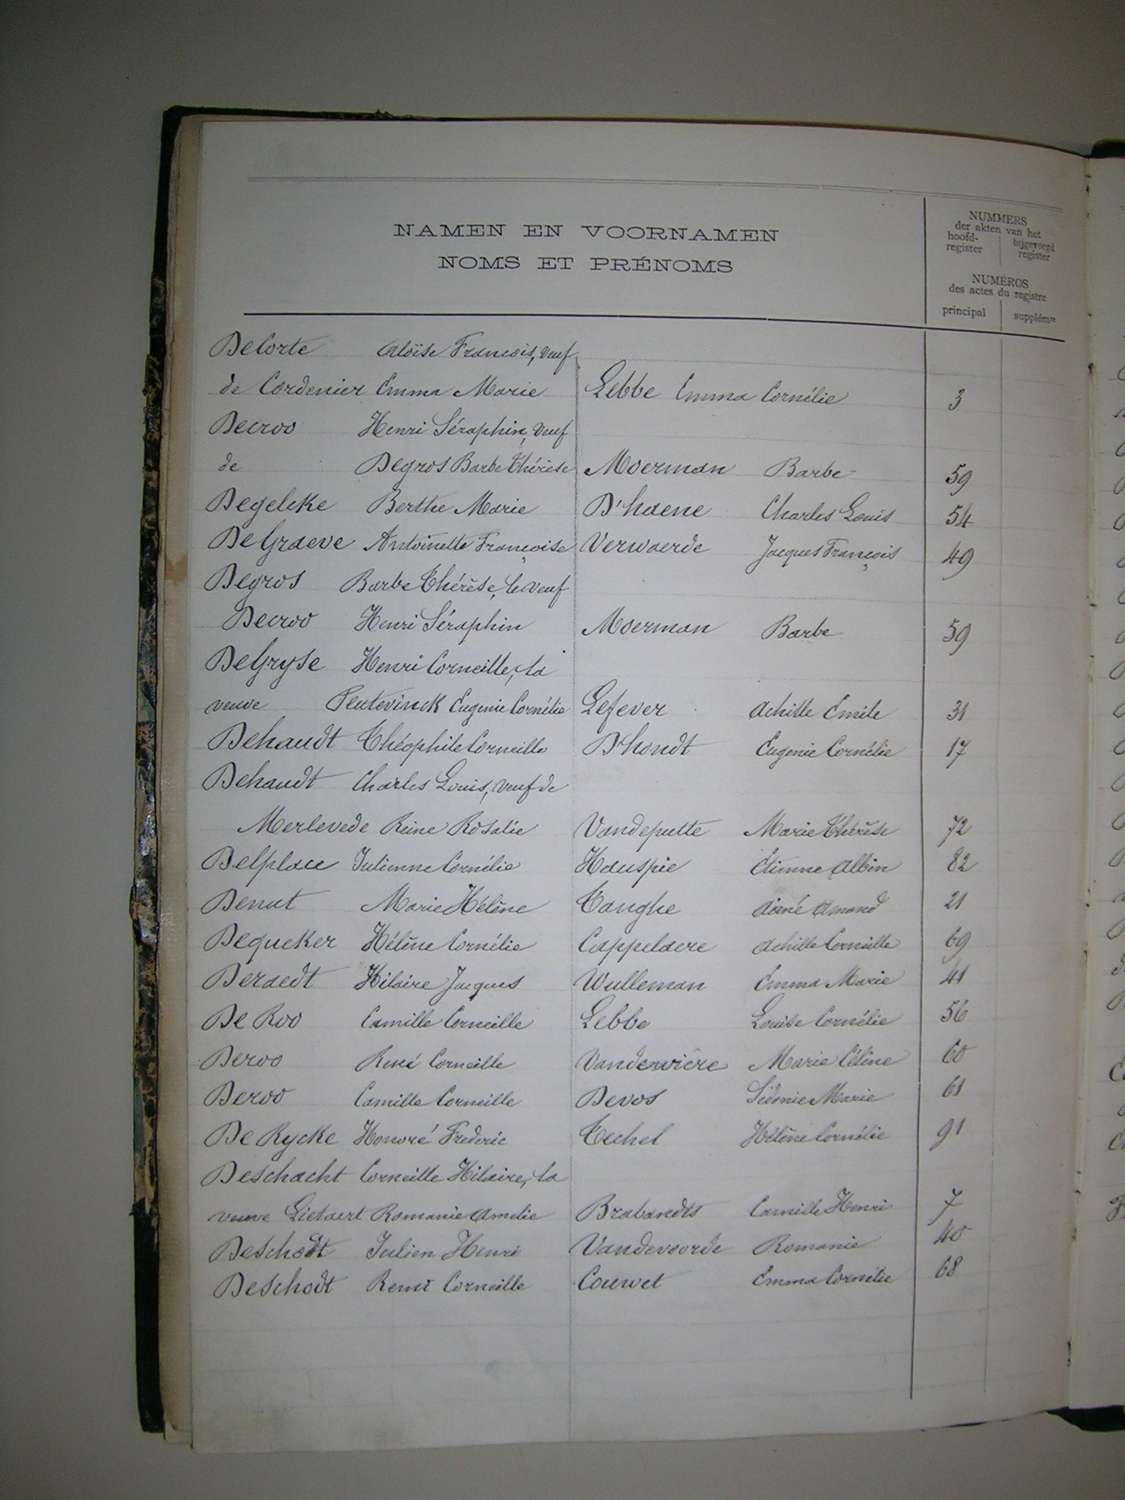 NAMEN EN VOORNAMEN
NOMS ET PRÉNOMS
NUMMERS
der akten van het
hoofd-register
bijgevoegd register
NUMÉROS
des actes du registre
principal supplém.re
DeCorte Aloïse François, veuf
de Cordenier Emma Marie Lebbe Emma Cornélie 3
Decroo Henri Séraphin, veuf
de Degros Barbe Thérèse Moerman Barbe 59
Degeleke Berthe Marie D'haene Charles Louis 54
DeGraeve Antoinette Françoise Verwaerde Jacques François 49
Degros Barbe Thérèse, le veuf
Decroo Henri Séraphin Moerman Barbe 59
DeGryse Henri Corneille, la
veuve Eugenie Cornélie Lefever Achille Emile 31
Dehaudt Théophile Corneille D'hondt Eugenie Cornélie 17
Dehaudt Charles Louis, veuf de
Merlevede Reine Rosalie Vandeputte Marie Thérèse 72
Delplace Julienne Cornélie Houspie Etienne Albin 82
Denut Marie Hélène Tanghe Aimé Amand 21
Dequeker Hélène Cornélie Cappelaere Achille Corneille 69
Deraedt Hilaire Jacques Wulleman Emma Marie 41
De Roo Camille Corneille Lebbe Louise Cornélie 56
Deroo René Corneille Vanderviere Marie Céline 60
Deroo Camille Corneille Devos Sidonie Marie 61
De Rycke Honoré Frederic Techel Hélène Cornélie 91
Deschacht Corneille Hilaire, la
veuve Lietaert Romanie Amelie Brabandts Camille Henri 7
Deschodt Julien Henri Vandevoorde Romanie 40
Deschodt Remi Corneille Couwet Emma Cornélie 68